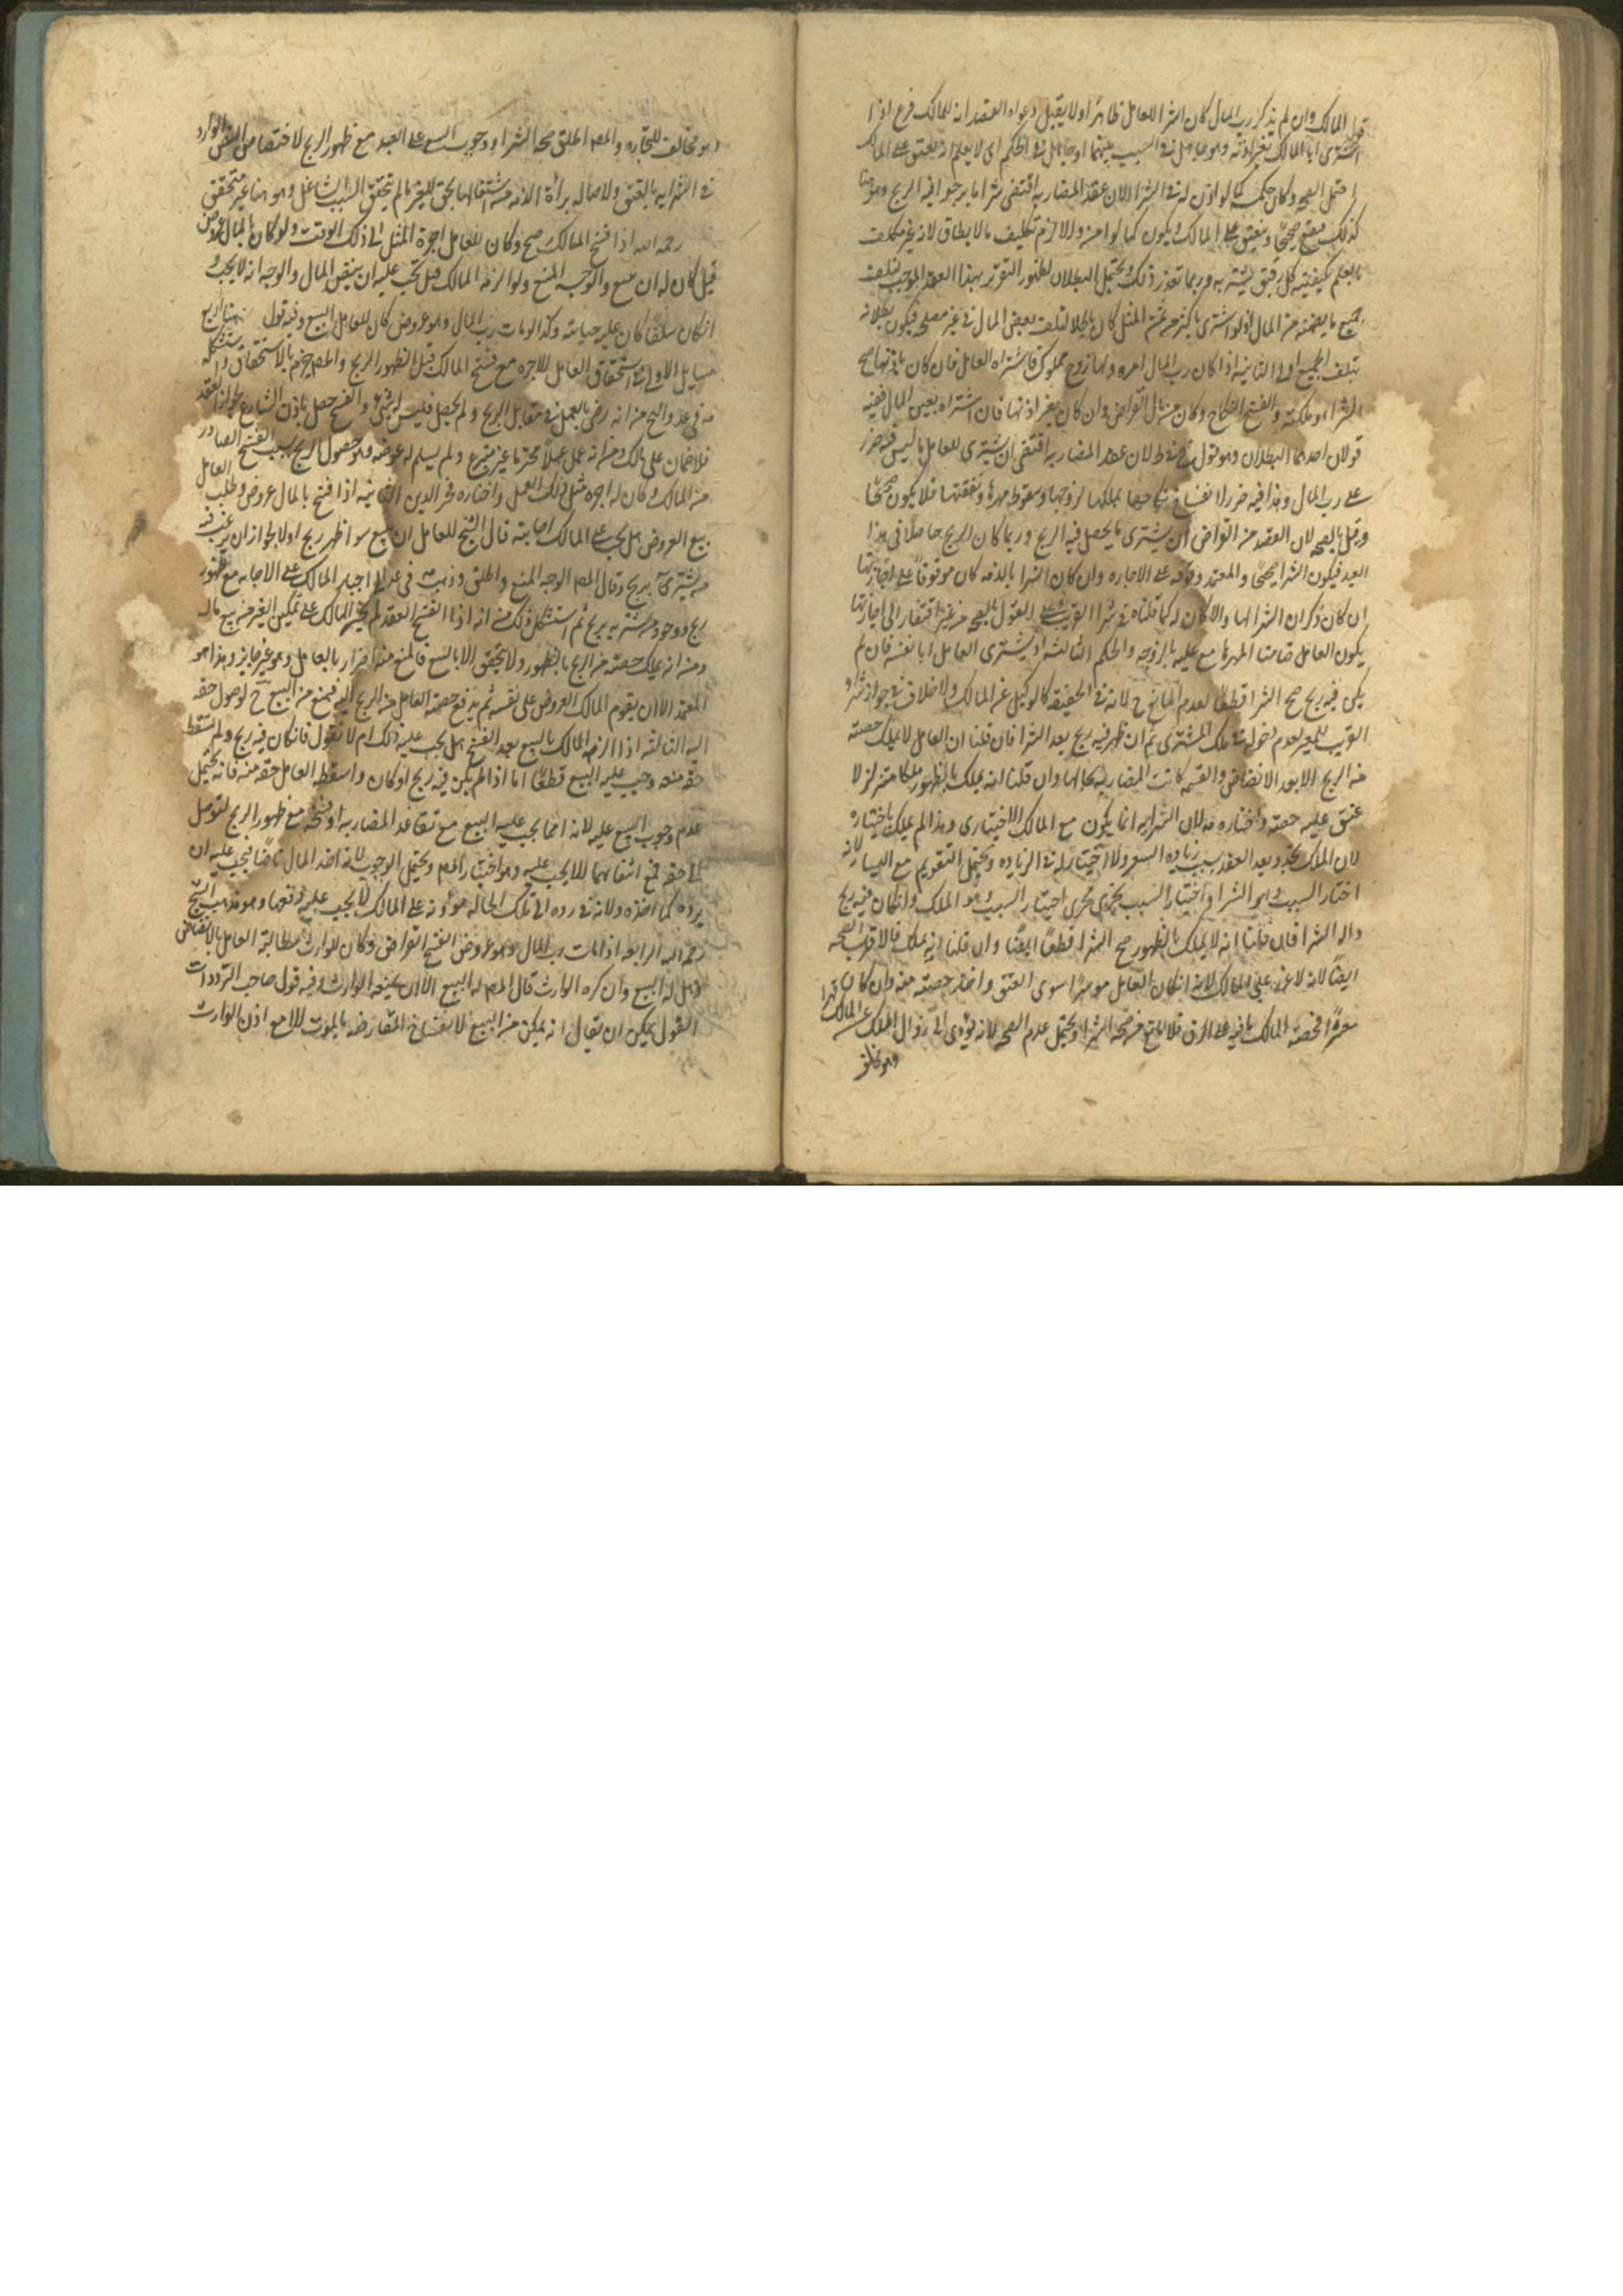 قول المالك وان لم يذكر رب المال كان الشرا للعامل ظاهرا ولا يقبل دعواه العقد انه للمالك فرع اذا
اشترى ابا المالك بغير اذنه وهو جاهل في السبب بينهما او جاهل في الحكم اى لا يعلم انه يعتق على المالك
احتمل الصحه وكان حكمه كما لو اذن له في الشرا لان عقد المضاربه اقتضى شرا ما يرجوا فيه الربح وهو هنا
كذلك فيقع صحيحا وينعتق على المالك ويكون كما لو امره والا لزم تكليف ما لا يطاق لانه غير مكلف
بالعلم بكيفية كل رقيق يشتريه وربما تعذر ذلك ويحتمل البطلان لظهور التغرير بهذا العقد الموجب لتلف
جميع ما يضمنه من المال اذ لو اشترى باكثر من ثمن المثل كان باطلا لتلف بعض المال في غير مصلحه فيكون بطلانه
بتلف الجميع اولى الثانيه اذا كان رب المال امراه ولها زوج مملوك فاشتراه العامل فان كان باذنها صح
الشراء وملكته وانفسخ النكاح وكان من مال القراض وان كان بغير اذنها فان اشتراه بعين المال ففيه
قولان احدهما البطلان وهو قول الشيخ في ط لان عقد المضاربه اقتضى ان يشترى للعامل ما ليس فيه ضرر
على رب المال وهذا فيه ضرر لانفساخ نكاحها بملكها لزوجها وسقوط مهرها ونفقتها فلا يكون صحيحا
وقيل بالصحه لان القصد من القراض ان يشترى ما يحصل فيه الربح وربما كان الربح حاصلا في هذا
العبد فيكون الشرا صحيحا والمعتمد وقوفه على الاجازه وان كان الشرا بالذمه كان موقوفا على اجازتها
ان كان ذكر ان الشرا لها والا كان له كما قلناه في شرا القريب وعلى القول بالصحه من غير افتقار الى اجازتها
يكون العامل ضامنا المهرها مع علمه بالزوجه والحكم الثالثه اذا اشترى العامل ابا نفسه فان لم
يكن فيه ربح صح الشرا قطعا لعدم المانع ح لانه في الحقيقه كالوكيل عن المالك ولا خلاف في جواز شراء
القريب للغير لعدم دخوله في ملك المشترى ثم ان ظهر فيه ربح بعد الشرا فان قلنا ان العامل لا يملك حصته
من الربح الا بعد الانضاض والقسمه كانت المضاربه بحالها وان قلنا انه يملك بالظهور ملكا متزلزلا
عتق عليه حصته واختاره عد لان الشرايه انما يكون مع المالك الاختيارى وهذا لم يملك باختياره
لان الملك تجدد بعد العقد بسبب زياده السوق ولا اختيار له في الزياده ويحتمل التقويم مع اليسار لانه
اختار السبب وهو الشرا واختيار السبب يجرى مجرى اختيار المسبب وهو الملك وان كان فيه ربح
حاله الشرا فان قلنا انه لا يملك بالظهور صح الشرا قطعا ايضا وان قلنا انه يملك فالاقرب الصحه
ايضا لانه لا ضرر على المالك لانه ان كان العامل موسرا سرى العتق واخذ حصته منه وان كان
معسرا فحصه المالك باقيه على الرق فلا مانع من صحه الشرا ويحتمل عدم الصحه لانه يؤدى الى زوال الملك عن المالك قهرا
وهو مخالف
وهو مخالف للتجاره والمص اطلق صحه الشرا ووجوب السعى على العبد مع ظهور الربح لاختصاص النص الوارد
في الشرايه بالعتق ولاصاله برأة الذمه من اشتغالها بحق للغير ما لم يتحقق السبب الشاغل وهو هنا غير متحقق
رحمه الله اذا فسخ المالك صح وكان للعامل اجرة المثل الى ذلك الوقت ولو كان بالمال عروض
قيل كان له ان يبيع والوجه المنع ولو الزمه المالك قيل تجب عليه ان ينض المال والوجه انه لا يجب
ان كان سلفا كان عليه جبايته وكذا لو مات رب المال وهو عروض كان للعامل البيع وفيه قول هنا اربع
مسايل الاولى في استحقاق العامل للاجره مع فسخ المالك قبل الظهور الربح والمص جزم بالاستحقاق واستشكله
عد في عد والتح من انه رضى بالعمل في مقابل الربح ولم يحصل فليس له شئ والفسخ حصل باذن الشارع بجواز العقد
فلا ضمان على مالك ومن انه عمل عملا محترما غير متبرع ولم يسلم له عوضه وهو حصول الربح بسبب الفسخ الصادر
من المالك وكان له اجره مثل ذلك العمل واختاره فخر الدين الثانيه اذا فسخ بالمال عروض وطلب العامل
بيع العروض هل يجب على المالك اجابته قال الشيخ للعامل ان يبيع سوا ظهر ربح او لا لجواز ان يرغب فيه
من يشتري بربح وقال المص الوجه المنع واطلق وذهب عد في عد الى اجبار المالك على الاجابه مع ظهور
ربح ووجود من يشتريه بربح ثم استشكل ذلك من انه اذا انفسخ العقد لم يجبر المالك على تمكين الغير من بيع ماله
ومن انه يملك حصته من الربح بالظهور ولا يتحقق الا بالبيع فالمنع منه اضرار بالعامل وهو غير جايز وهذا هو
المعتمد الا ان يقوم المالك العروض على نفسه ثم يدفع حصه العامل من الربح اليه فيمنع من البيع ح لوصول حقه
اليه الثالثه اذا الزمه المالك بالبيع بعد الفسخ هل يجب عليه ذلك ام لا نقول فان كان فيه ربح ولم يسقط
حقه منه وجب عليه البيع قطعا اما اذا لم يكن فيه ربح او كان واسقط العامل حقه منه فانه يحتمل
عدم وجوب البيع عليه لانه انما يجب عليه البيع مع تقاعد المضاربه او فسخه مع ظهور الربح لتوصل
الى حقه فمع انتفائهما لا يجب عليه وهو اختيار المص ويحتمل الوجوب لانه اخذ المال ناضا فيجب عليه ان
يرده كما اخذه ولانه في رده الى تلك الحاله مؤونه على المالك لا يجب عليه دفعها وهو مذهب الشيخ
رحمه الله الرابعه اذا مات رب المال وهو عروض انفسخ القراض وكان للوارث مطالبة العامل بالانضاض
وهل له البيع وان كره الوارث قال المص له البيع الا ان يمنعه الوارث وفيه قول صاحب الترددات
القول يمكن ان يقال انه يمكن من البيع لانفساخ المقارضه بالموت الا مع اذن الوارث